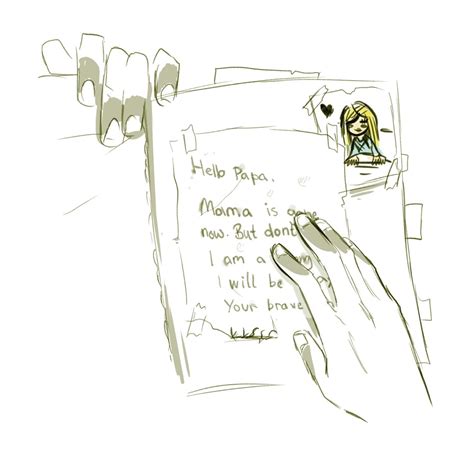 Hello Papa.
Mama is gone
now. But dont
I am a
I will be
Your brave